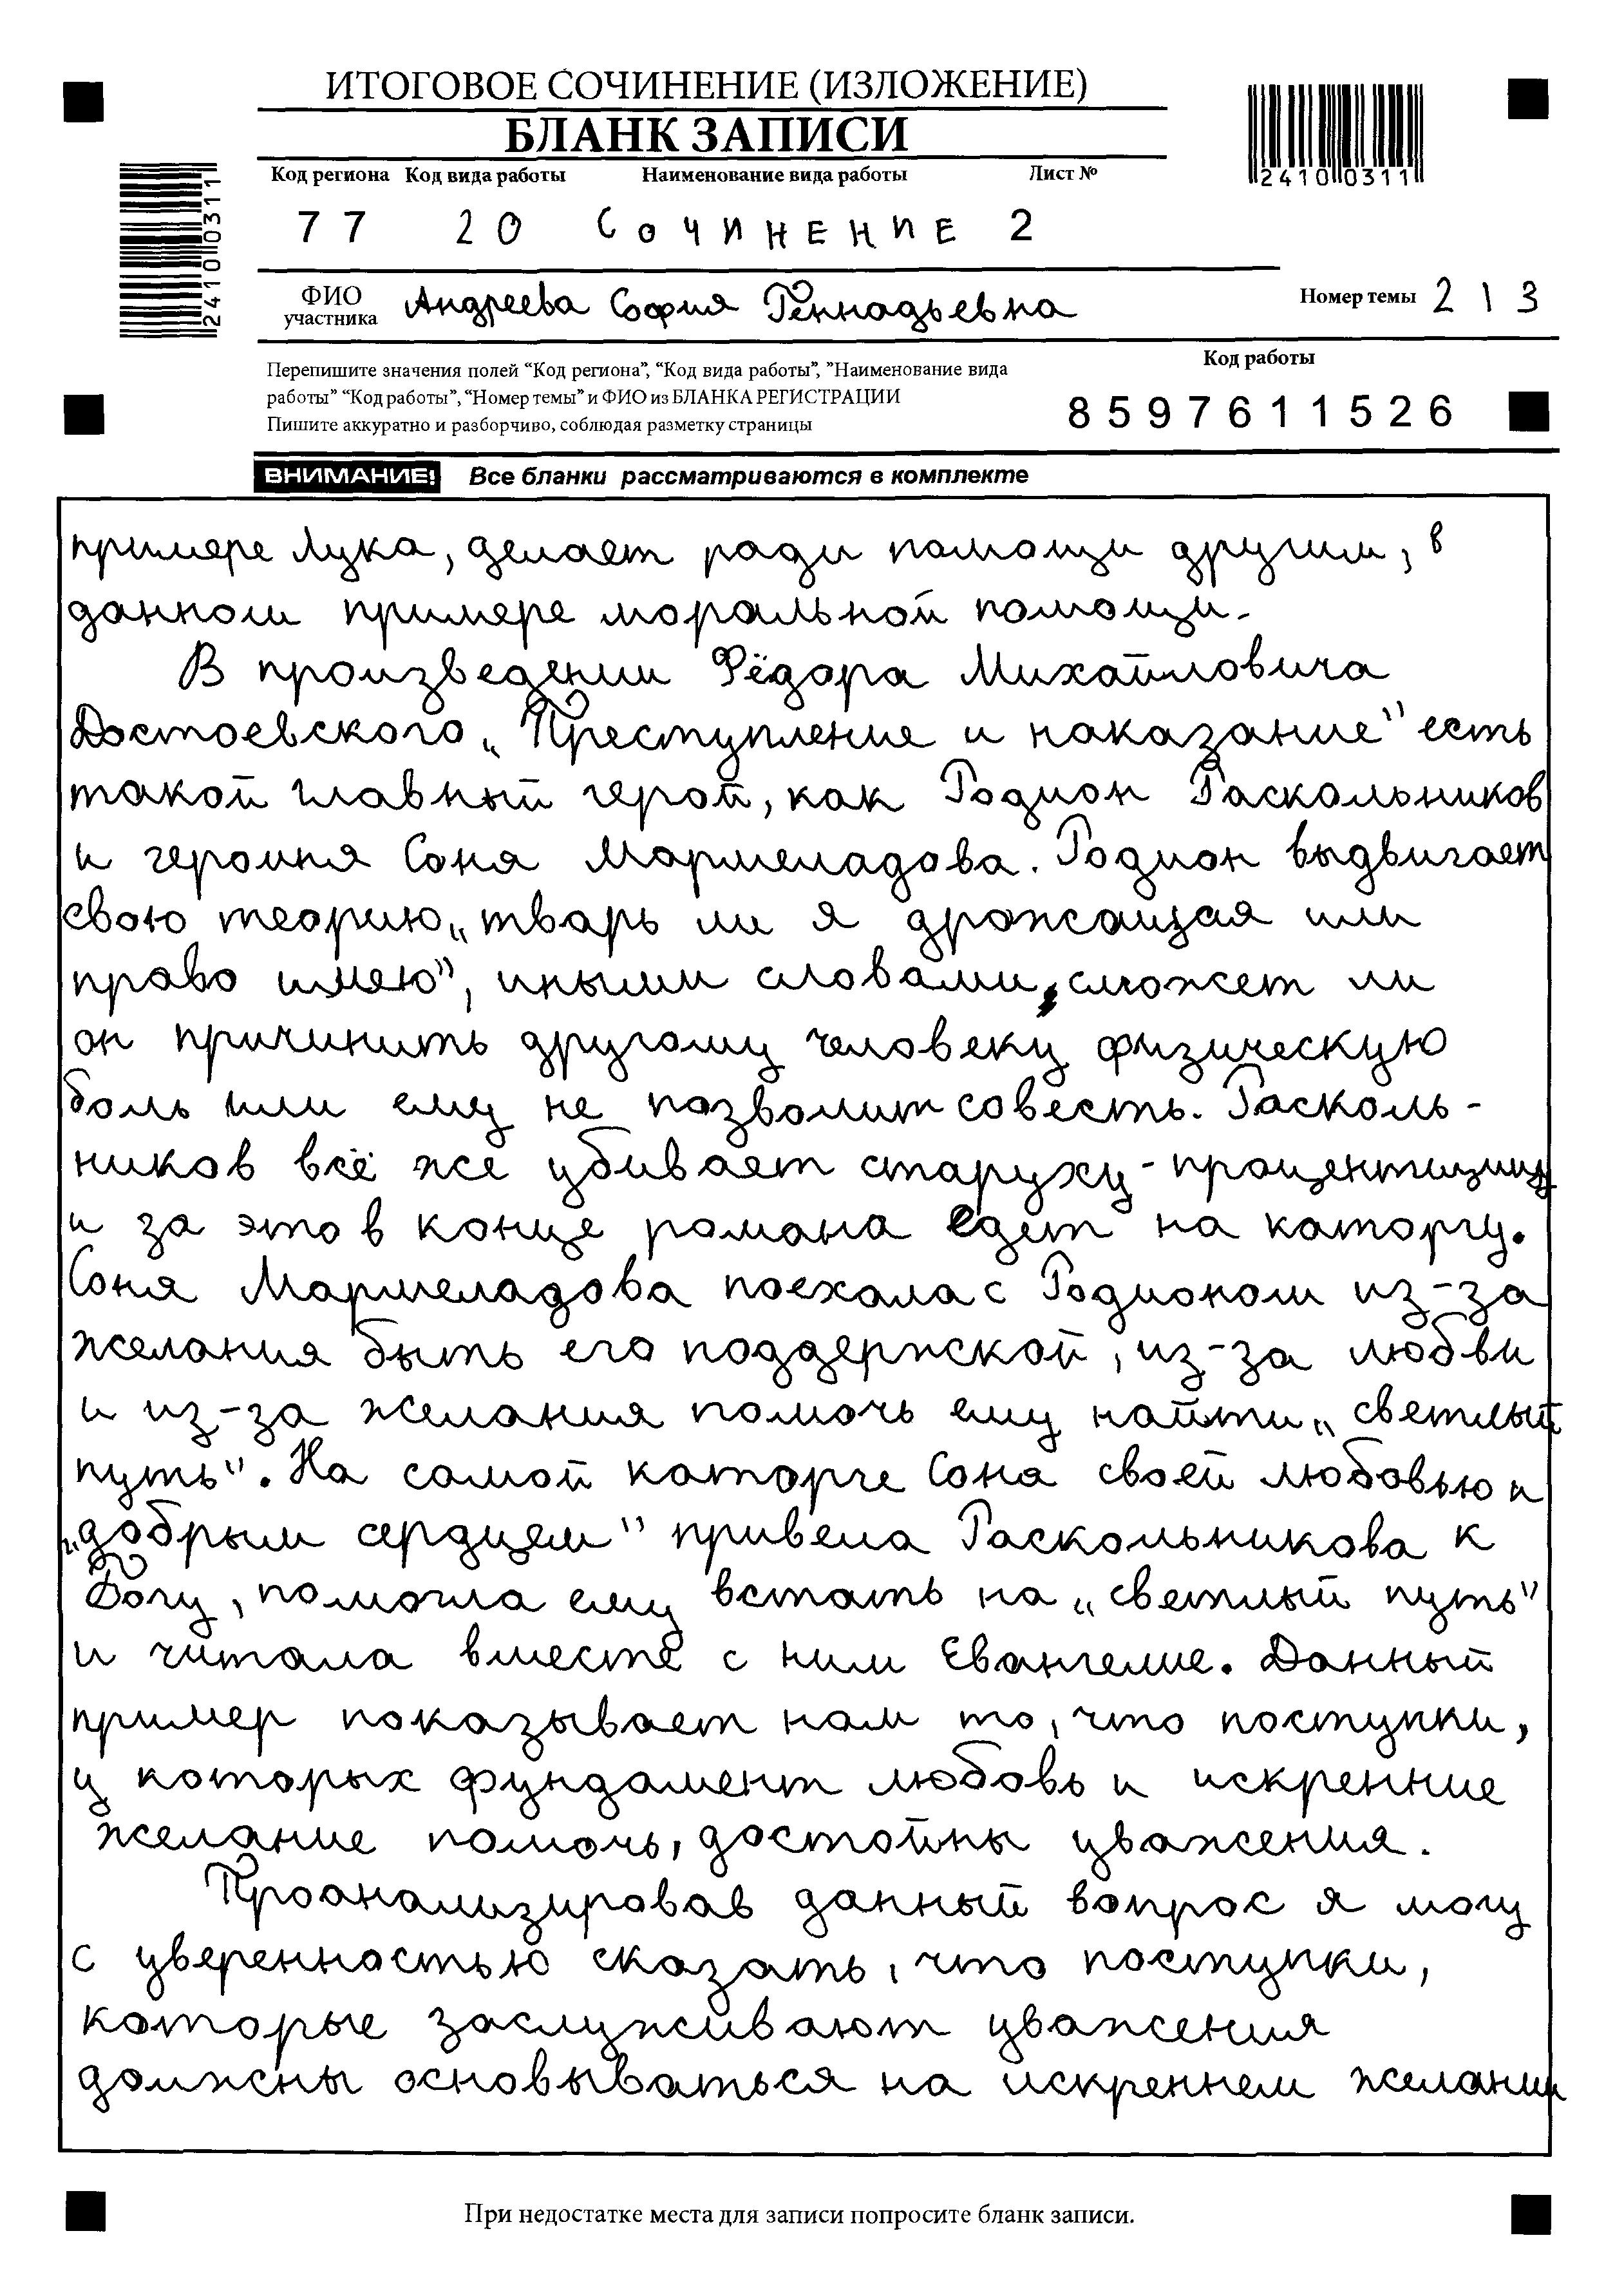 ИТОГОВОЕ СОЧИНЕНИЕ (ИЗЛОЖЕНИЕ)
БЛАНК ЗАПИСИ
Код региона Код вида работы Наименование вида работы Лист №
77 20 СОЧИНЕНИЕ 2
2410 0311
2410 0311
ФИО участника Андреева София Геннадьевна Номер темы 213
Код работы
Перепишите значения полей “Код региона”, “Код вида работы”, ”Наименование вида
работы” “Код работы”, “Номер темы” и ФИО из БЛАНКА РЕГИСТРАЦИИ
Пишите аккуратно и разборчиво, соблюдая разметку страницы
8597611526
ВНИМАНИЕ! Все бланки рассматриваются в комплекте
примере Лука, делает ради помощи другим, в
данном примере моральной помощи.
В произведении Фёдора Михайловича
Достоевского „Преступление и наказание” есть
такой главный герой, как Родион Раскольников
и героиня Соня Мармеладова. Родион выдвигает
свою теорию „тварь ли я дрожащая или
право имею”, иными словами, сможет ли
он причинить другому человеку физическую
боль или ему не позволит совесть. Расколь-
ников всё же убивает старуху-процентщицу
и за это в конце романа едет на каторгу.
Соня Мармеладова поехала с Родионом из-за
желания быть его поддержкой, из-за любви
и из-за желания помочь ему найти „светлый
путь”. На самой каторге Соня своей любовью и
„добрым сердцем” привела Раскольникова к
Богу, помогла ему встать на „светлый путь”
и читала вместе с ним Евангелие. Данный
пример показывает нам то, что поступки,
у которых фундамент любовь и искренние
желание помочь, достойны уважения.
Проанализировав данный вопрос я могу
с уверенностью сказать, что поступки,
которые заслуживают уважения
должны основываться на искреннем желании
При недостатке места для записи попросите бланк записи.